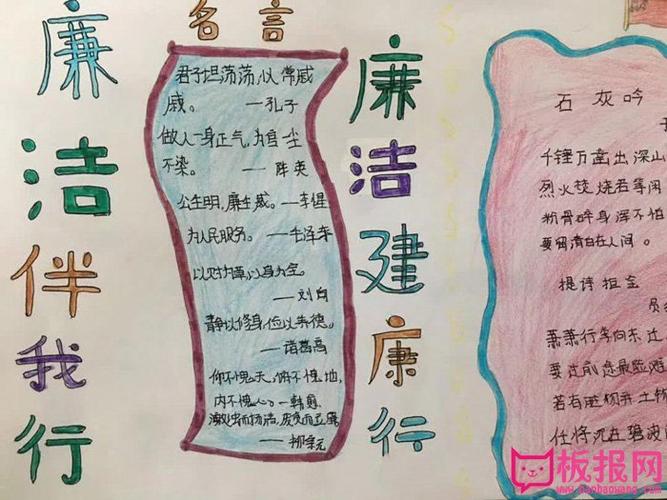 廉洁伴我行
名言
君子坦荡荡,小人常戚
戚。 —孔子
做人一身正气,为官一尘
不染。
公生明,廉生威。
为人民服务。—毛泽东
以身为宝。
—刘向
静以修身,俭以养德。
—诸葛亮
仰不愧天,俯不愧地,
内不愧心。—韩愈
激浊而扬清,废贪而立廉
—柳宗元
廉洁建康行
石灰吟
千锤万凿出深山
烈火焚烧若等闲
粉骨碎身浑不怕
要留清白在人间。
提诗拒金
员
萧萧行李向东
要过前途最险
若有脏物并土物
任将沉在碧波
板报网
www.banbaowang.com